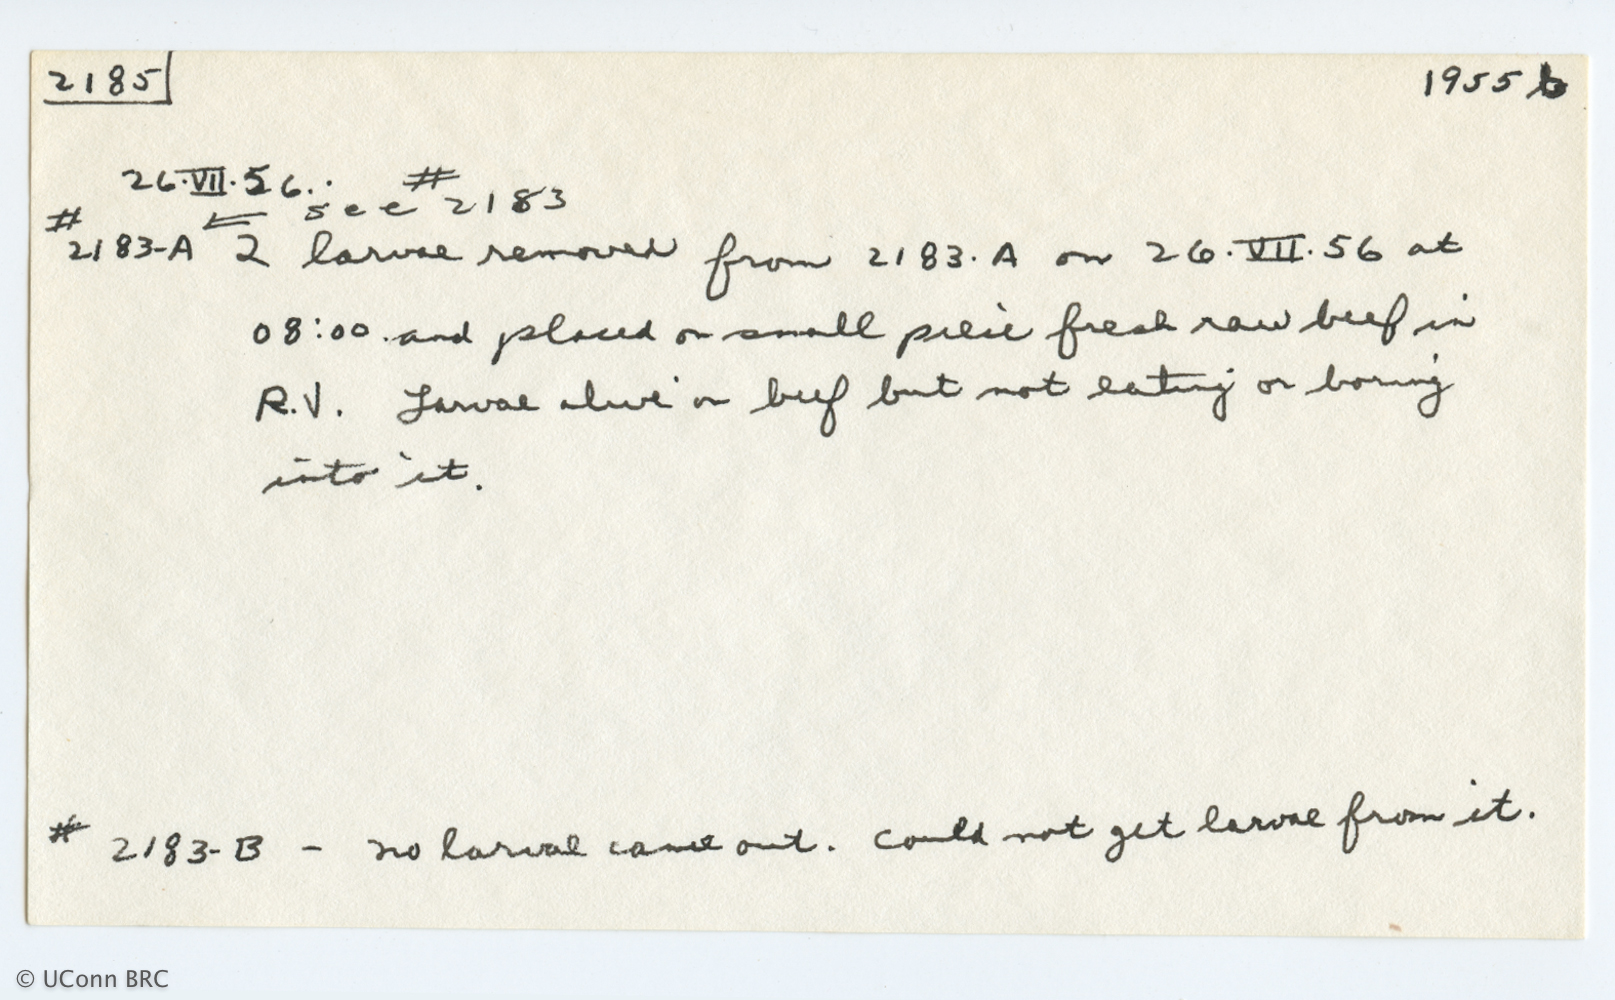 2185
1955 b
26.VII.56..
← see # 2183
# 2183-A 2 larvae removed from 2183.A on 26.VII.56 at
08:00 and placed on small peice fresh raw beef in
R.V. Larvae alive on beef but not eating or boring
into it.
# 2183-B - no larvae came out. Could not get larvae from it.
© UConn BRC